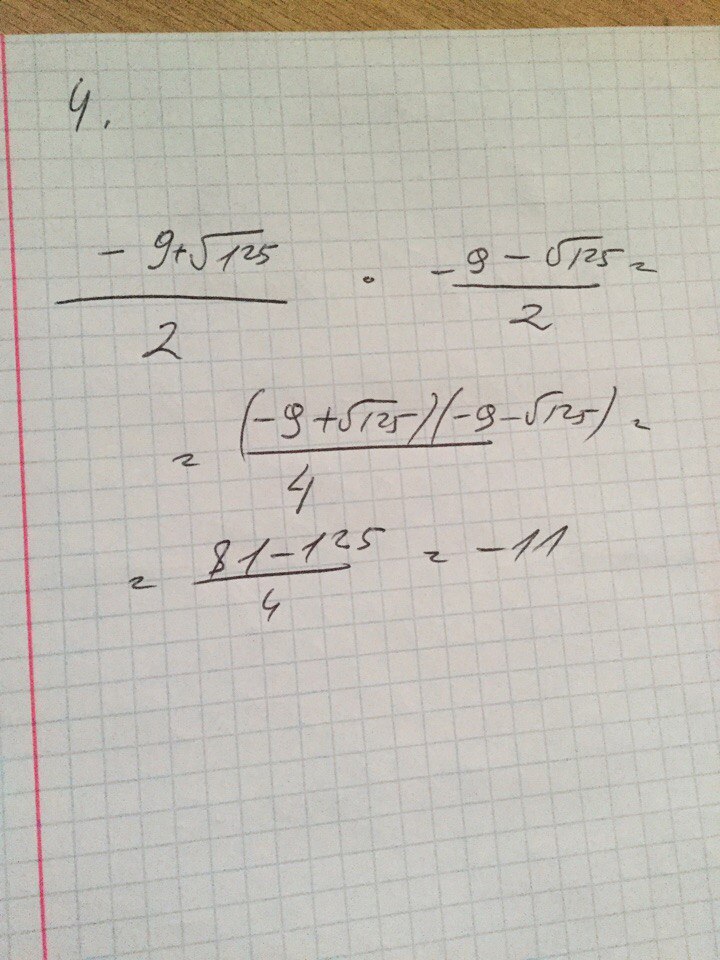 4.
(-9+√125)/2 · (-9-√125)/2 =
= (-9+√125)(-9-√125)/4 =
= (81-125)/4 = -11